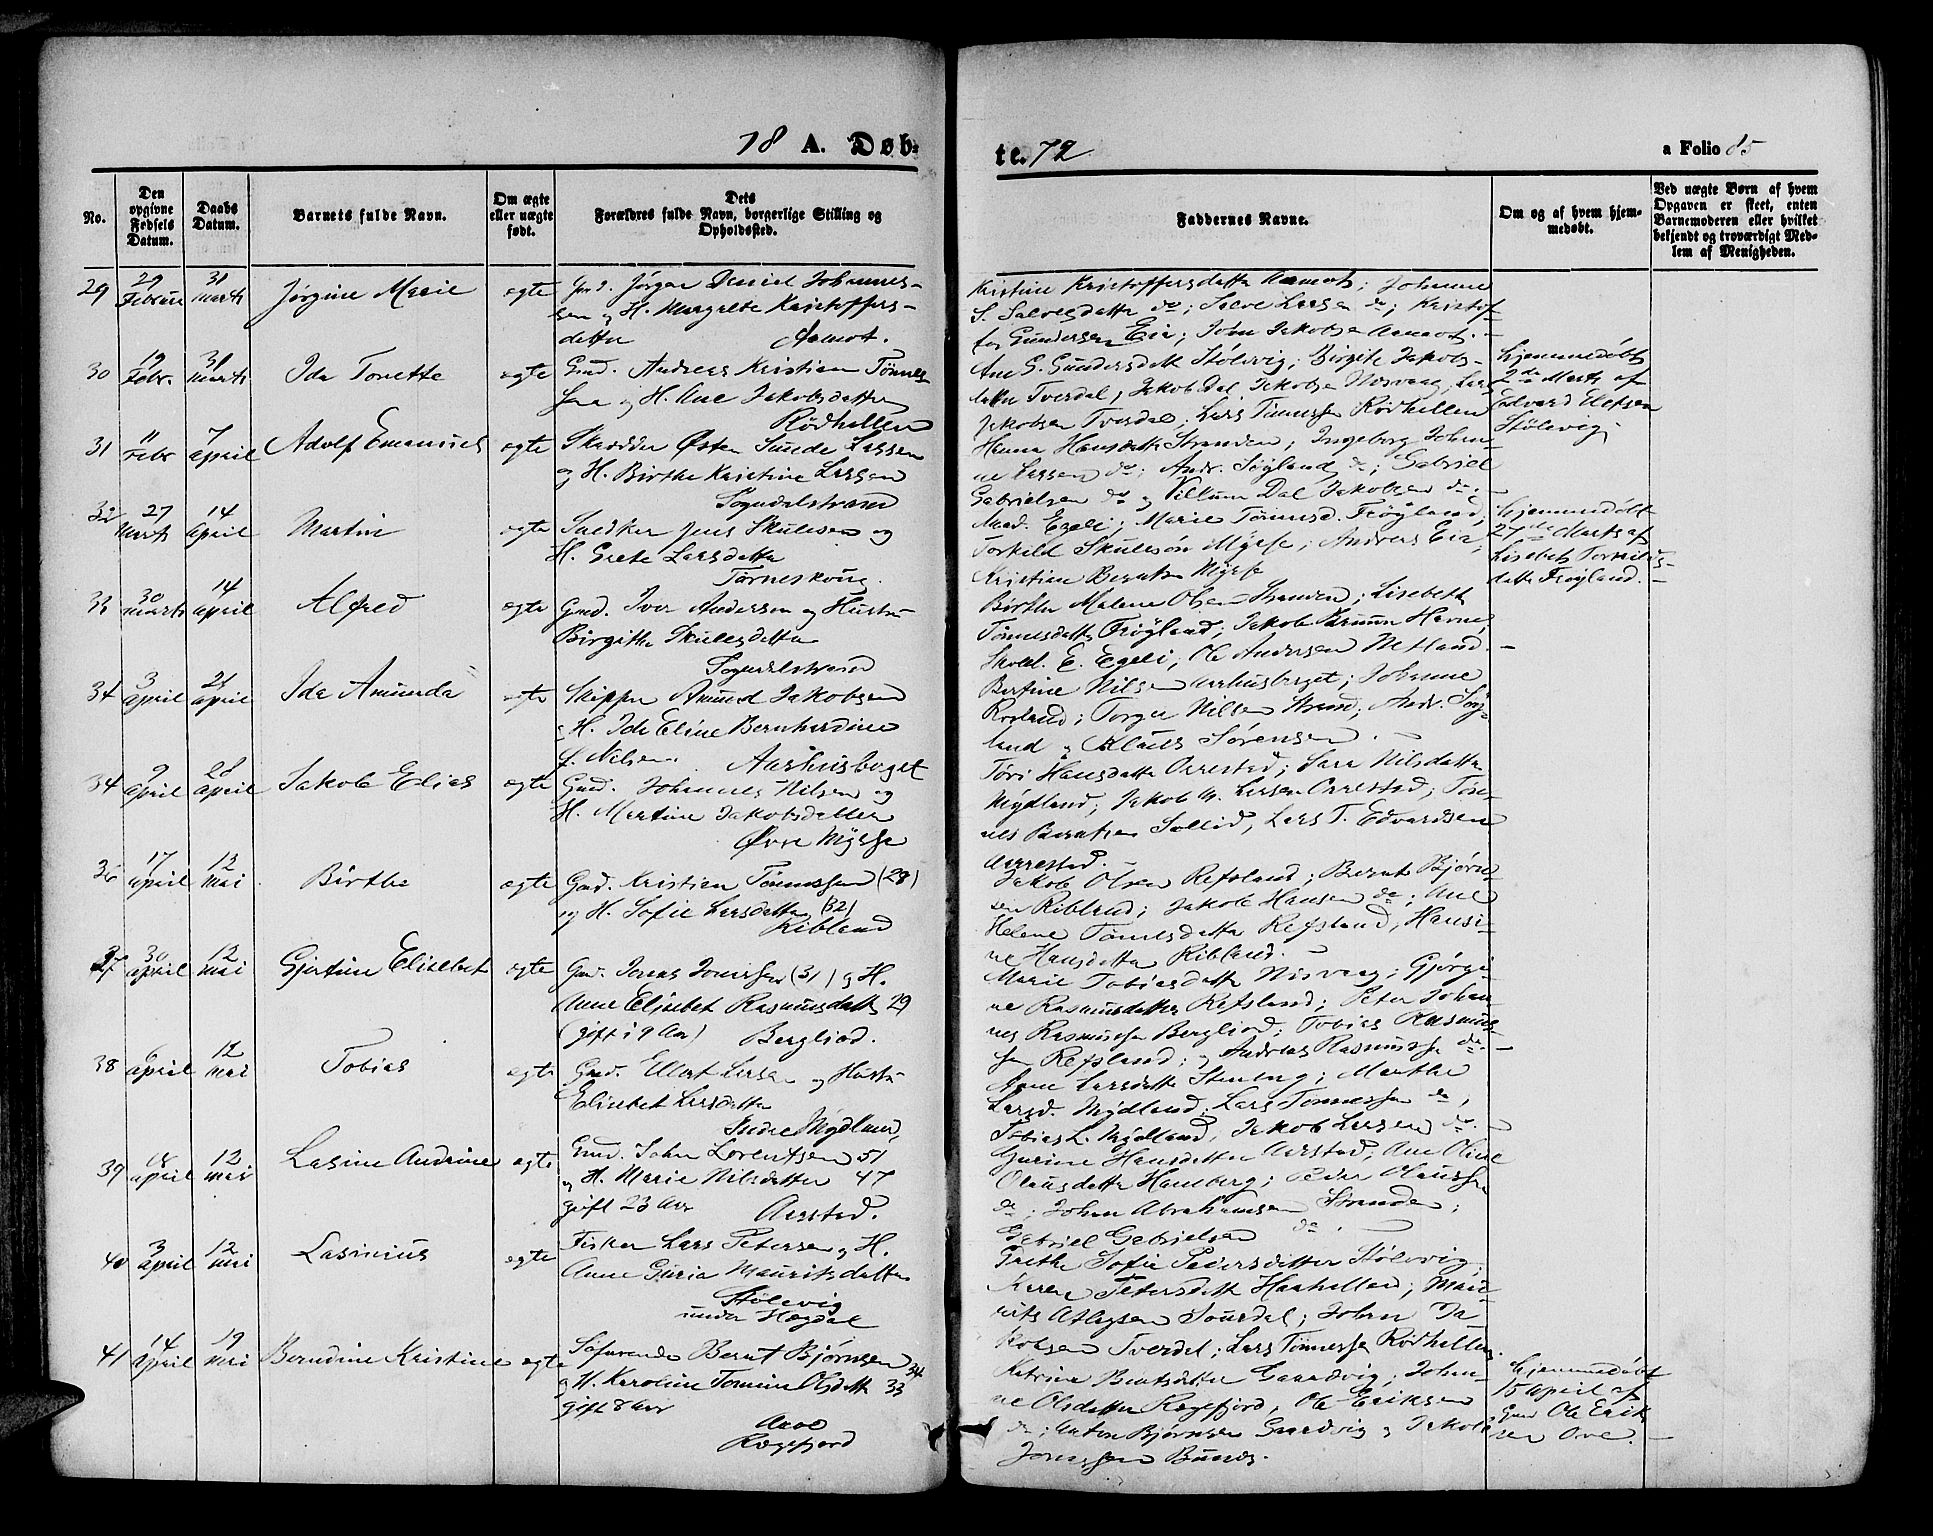 18 A. Døb-
te. 72
a Folio 85
No.
Den opgivne Fødsels Datum.
Daabs Datum.
Barnets fulde Navn.
Om ægte eller uægte født.
Dets Forældres fulde Navn, borgerlige Stilling og Opholdssted.
Faddernes Navne.
Om og af hvem hjem-
medøbt.
Ved uægte Børn af hvem
Opgaven er skeet, enten
Barnemoderen eller hvilket
bekjendt og troværdigt Med-
lem af Menigheden.
29 29 Februar 31 Marts Jørgine Marie egte Gmd. Jørgen Daniel Johannes-
sen og H. Margrete Kristoffers-
datter Aamot.
Kristine Kristoffersdatter Aamot; Johanne
S. Salvesdatter do; Salve Larsen do; Kristof-
fer Gundersen Eie; John Jakobsen Aamot.
30 19 Febr. 31 Marts Ida Tonette egte Gmd. Andreas Kristian Tønnes-
sen og H. Ane Jakobsdatter
Rødhellen
Ane G. Gundersdatt Stølsvig; Birgite Jakobs-
datter Tverdal; Jakob Dal Jakobsen Nesvaag; Lars
Jakobsen Tverdal; Lars Tønnessen Rødhellen
Hjemmedøbt
2de Marts af
Edvard Elefsen
Stølsvig
31 11 Febr 7 April Adolf Emanuel egte Skrædder Østen Sunde Larsen
og H. Birthe Kristine Larsen
Sogndalstrand
Hanna Hansdatter Stranden; Ingeborg Johan-
ne Larsen do; Andr. Søyland do; Gabriel
Gabrielsen do og Villum Dal Jakobsen do.
32 27 Marts 14 April Martin egte Snedker Jens Skulesen og
H. Grete Larsdatter
Tørneskoug.
Mad. Egeli; Marie Tønnesd. Frøyland;
Torkild Skulesøn Myrse; Andreas Eia;
Kristian Berntsen Myrse
Hjemmedøbt
27de Marts af
Lisebet Torkilds-
datter Frøyland.
33 30 Marts 14 April Alfred egte Gmd. Iver Andersen og Hustru
Birgitte Skulesdatter
Sogndalstrand
Birthe Malene Olsen Stranden; Lisebeth
Tønnesdatter Frøyland; Jakob Havne;
Skold. E. Egeli; Ole Andersen Netland.
34 3 April 21 April Ida Amunda egte Skipper Amund Jakobsen
og H. Ida Eline Bernhardine
f. Nilsen. Aarhusberget
Bertine Nilsen Aarhusberget; Johanne
Rosland; Torger Nilsen Strand; Andr. Søy-
land og Klaus Sørensen.
34 9 April 28 April Jakob Elias egte Gmd. Johannes Nilsen og
H. Martine Jakobsdatter
Øvre Myrse
Tøri Hansdatter Orrestad; Sara Nilsdatter
Mydland; Jakob M. Larsen Orrestad; Tøn-
nes Berntsen Sollid, Lars T. Edvardsen
Aarrestad.
36 17 April 12 Mai Birthe egte Gmd. Kristian Tønnessen (28)
og H. Sofie Larsdatter (32)
Ribland
Jakob Olsen Refsland; Bernt Bjørn-
sen Ribland; Jakob Hansen do; Ane
Helene Tønnesdatter Refsland, Hansi-
ne Hansdatter Ribland.
37 30 April 12 Mai Gjertine Elisebet egte Gmd. Jonas Jonassen (31) og H.
Anne Elisebet Rasmusdatter 29
(gift i 9 Aar) Bergliod.
Marie Tobiasdatter Nesvaag; Gjørgi-
ne Rasmusdatter Refsland; Peter Johan-
nes Rasmussen Bergliod; Tobias Rasmus-
sen Refsland; og Andreas Rasmussen do.
38 6 April 12 Mai Tobias egte Gmd. Ellert Larsen og Hustru
Elisebet Larsdatter
Indre Mydland,
Anne Larsdatter Stenberg; Marthe
Larsd. Mydland, Lars Tønnessen do,
Tobias L. Mydland, Jakob Larsen do.
39 April 12 Mai Lasine Andrine egte Gmd. John Lorentsen 51
og H. Marie Nilsdatter 47
gift 23 Aar Aarstad.
Gurine Hansdatter Aarstad, Ane Oline
Olausdatter Hamberg; Peder Olaussen
do; Johan Abrahamsen Stranden;
Gabriel Gabrielsen do.
40 3 April 12 Mai Lasinius egte Fisker Lars Petersen og H.
Anne Guria Mauritsdatter
Stølsvig
under Hegdal
Grethe Sofie Pedersdatter Stølsvig;
Karen Petersdatter Haahelleren; Mau-
rits Atlagsen Soursdal; Johan Ja-
kobsen Tverdal; Lars Tønnessen Rødhellen.
41 14 April 19 Mai Berndine Kristine egte Søfarende Bernt Bjørnsen 34
og H. Karoline Tomine Olsdatt 33
gift 8 Aar
Aave
Rægefjord
Katrine Berntsdatter Gaardvig; Johan-
ne Olsdatter Rægefjord, Ole Eriksen
do; Anton Bjørnsen Gaardvig og Jakob
Jonassen Buness.
Hjemmedøbt
15 April af
Gmd Ole Erik-
sen Ove.